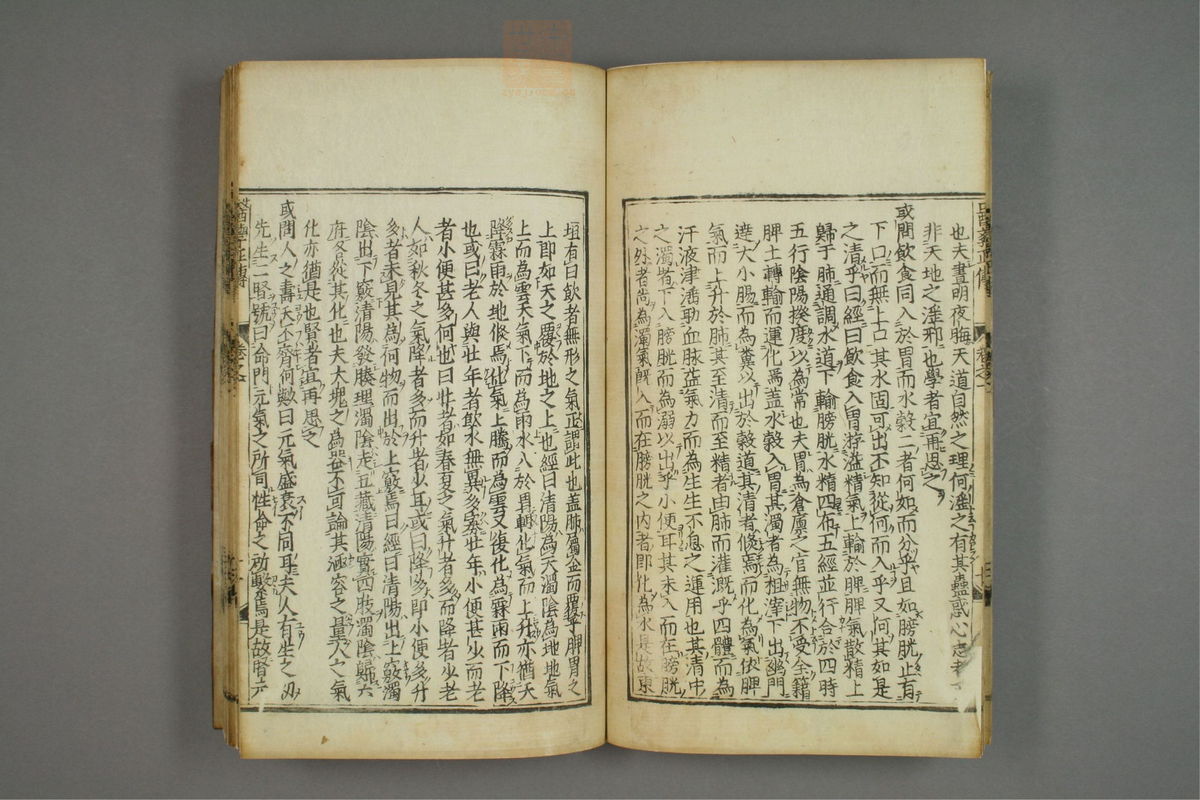 也夫晝明夜晦天道自然之理何滛之有其蠱惑心志者
非天地之滛邪也學者宜再思之
或問飲食同入於胃而水穀二者何如而分乎且如膀胱止有
下口而無上口其水固可出不知從何而入乎又何其如是
之清乎曰經曰飲食入胃游溢精氣上輸於脾脾氣散精上
歸于肺通調水道下輸膀胱水精四布五經並行合於四時
五行陰陽揆度以為常也夫胃為倉廪之官無物不受全籍
脾土轉輸而運化焉盖水穀入胃其濁者為柤滓下出幽門
達大小腸而為糞以出於穀道其清者倐焉而化為氣依脾
氣而上升於肺其至清而至精者由肺而灌溉乎四體而為
汗液津潘助血脉益氣力而為生生不息之運用也其清中
之濁者下入膀胱而為溺以出乎小便耳其未入而在膀胱
之外者尚為濁氣既入而在膀胱之内者即化為水是故東
垣有曰飲者無形之氣正謂此也盖肺屬金而覆乎脾胃之
上即如天之覆於地之上也經曰清陽為天濁陰為地地氣
上而為雲天氣下而為雨水入於胃轉化氣而上升亦猶天
降霖雨於地倐焉化氣上騰而為雲又復化為霖雨而下降
也或曰老人與壯年者飲水無異多寡壯年小便甚少而老
者小便甚多何也曰壯者如春夏之氣升者多而降者少老
人如秋冬之氣降者多而升者少耳或曰降多即小便多升
多者未見其為何物而出於上竅焉曰經曰清陽出上竅濁
陰出下竅清陽發腠理濁陰走五藏清陽實四肢濁陰歸六
府各從其化也夫大塊之為器不可論其涵容之量人之氣
化亦猶是也賢者宜再思之
或問人之壽夭不齊何歟曰元氣盛衰不同耳夫人有生之初
先生二腎號曰命門元氣之所司性命之所繫焉是故腎元
醫學正傳
卷之一